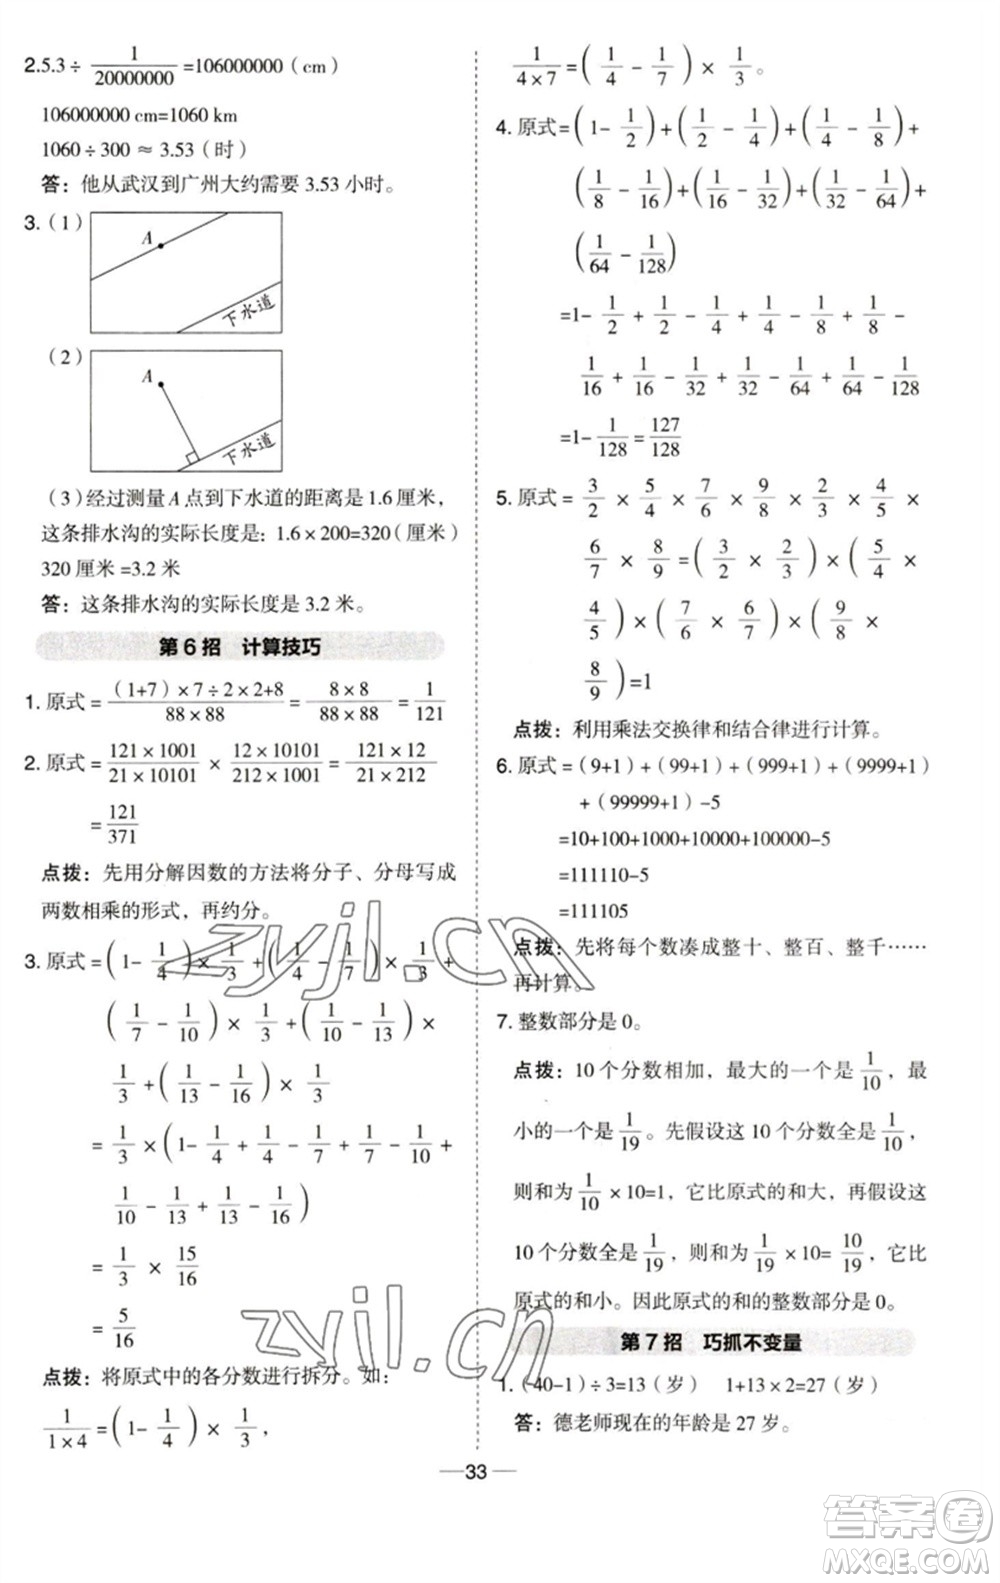 2.5.3÷1/20000000=106000000(cm)
106000000 cm=1060 km
1060÷300≈3.53(时)
答：他从武汉到广州大约需要 3.53 小时。
3.(1)
A
下水道
(2)
A
下水道
(3)经过测量 A 点到下水道的距离是 1.6 厘米，
这条排水沟的实际长度是：1.6×200=320(厘米)
320 厘米=3.2 米
答：这条排水沟的实际长度是 3.2 米。
第 6 招 计算技巧
1. 原式=(1+7)×7÷2×2+8/88×88=8×8/88×88=1/121
2. 原式=121×1001/21×10101×12×10101/212×1001=121×12/21×212
=121/371
点拨：先用分解因数的方法将分子、分母写成
两数相乘的形式，再约分。
3. 原式=(1-1/4)×1/3+(1/4-1/7)×1/3+
(1/7-1/10)×1/3+(1/10-1/13)×
1/3+(1/13-1/16)×1/3
=1/3×(1-1/4+1/4-1/7+1/7-1/10+
1/10-1/13+1/13-1/16)
=1/3×15/16
=5/16
点拨：将原式中的各分数进行拆分。如：
1/1×4=(1-1/4)×1/3，
1/4×7=(1/4-1/7)×1/3。
4. 原式=(1-1/2)+(1/2-1/4)+(1/4-1/8)+
(1/8-1/16)+(1/16-1/32)+(1/32-1/64)+
(1/64-1/128)
=1-1/2+1/2-1/4+1/4-1/8+1/8-
1/16+1/16-1/32+1/32-1/64+1/64-1/128
=1-1/128=127/128
5. 原式=3/2×5/4×7/6×9/8×2/3×4/5×
6/7×8/9=(3/2×2/3)×(5/4×
4/5)×(7/6×6/7)×(9/8×
8/9)=1
点拨：利用乘法交换律和结合律进行计算。
6. 原式=(9+1)+(99+1)+(999+1)+(9999+1)
+(99999+1)-5
=10+100+1000+10000+100000-5
=111110-5
=111105
点拨：先将每个数凑成整十、整百、整千……
再计算。
7. 整数部分是 0。
点拨：10 个分数相加，最大的一个是1/10，最
小的一个是1/19。先假设这 10 个分数全是1/10，
则和为1/10×10=1，它比原式的和大，再假设这
10 个分数全是1/19，则和为1/19×10=10/19，它比
原式的和小。因此原式的和的整数部分是 0。
第 7 招 巧抓不变量
1.(40-1)÷3=13(岁) 1+13×2=27(岁)
答：德老师现在的年龄是 27 岁。
33
zyjl.cn
zyjl.cn
答案圈
MXQE.COM